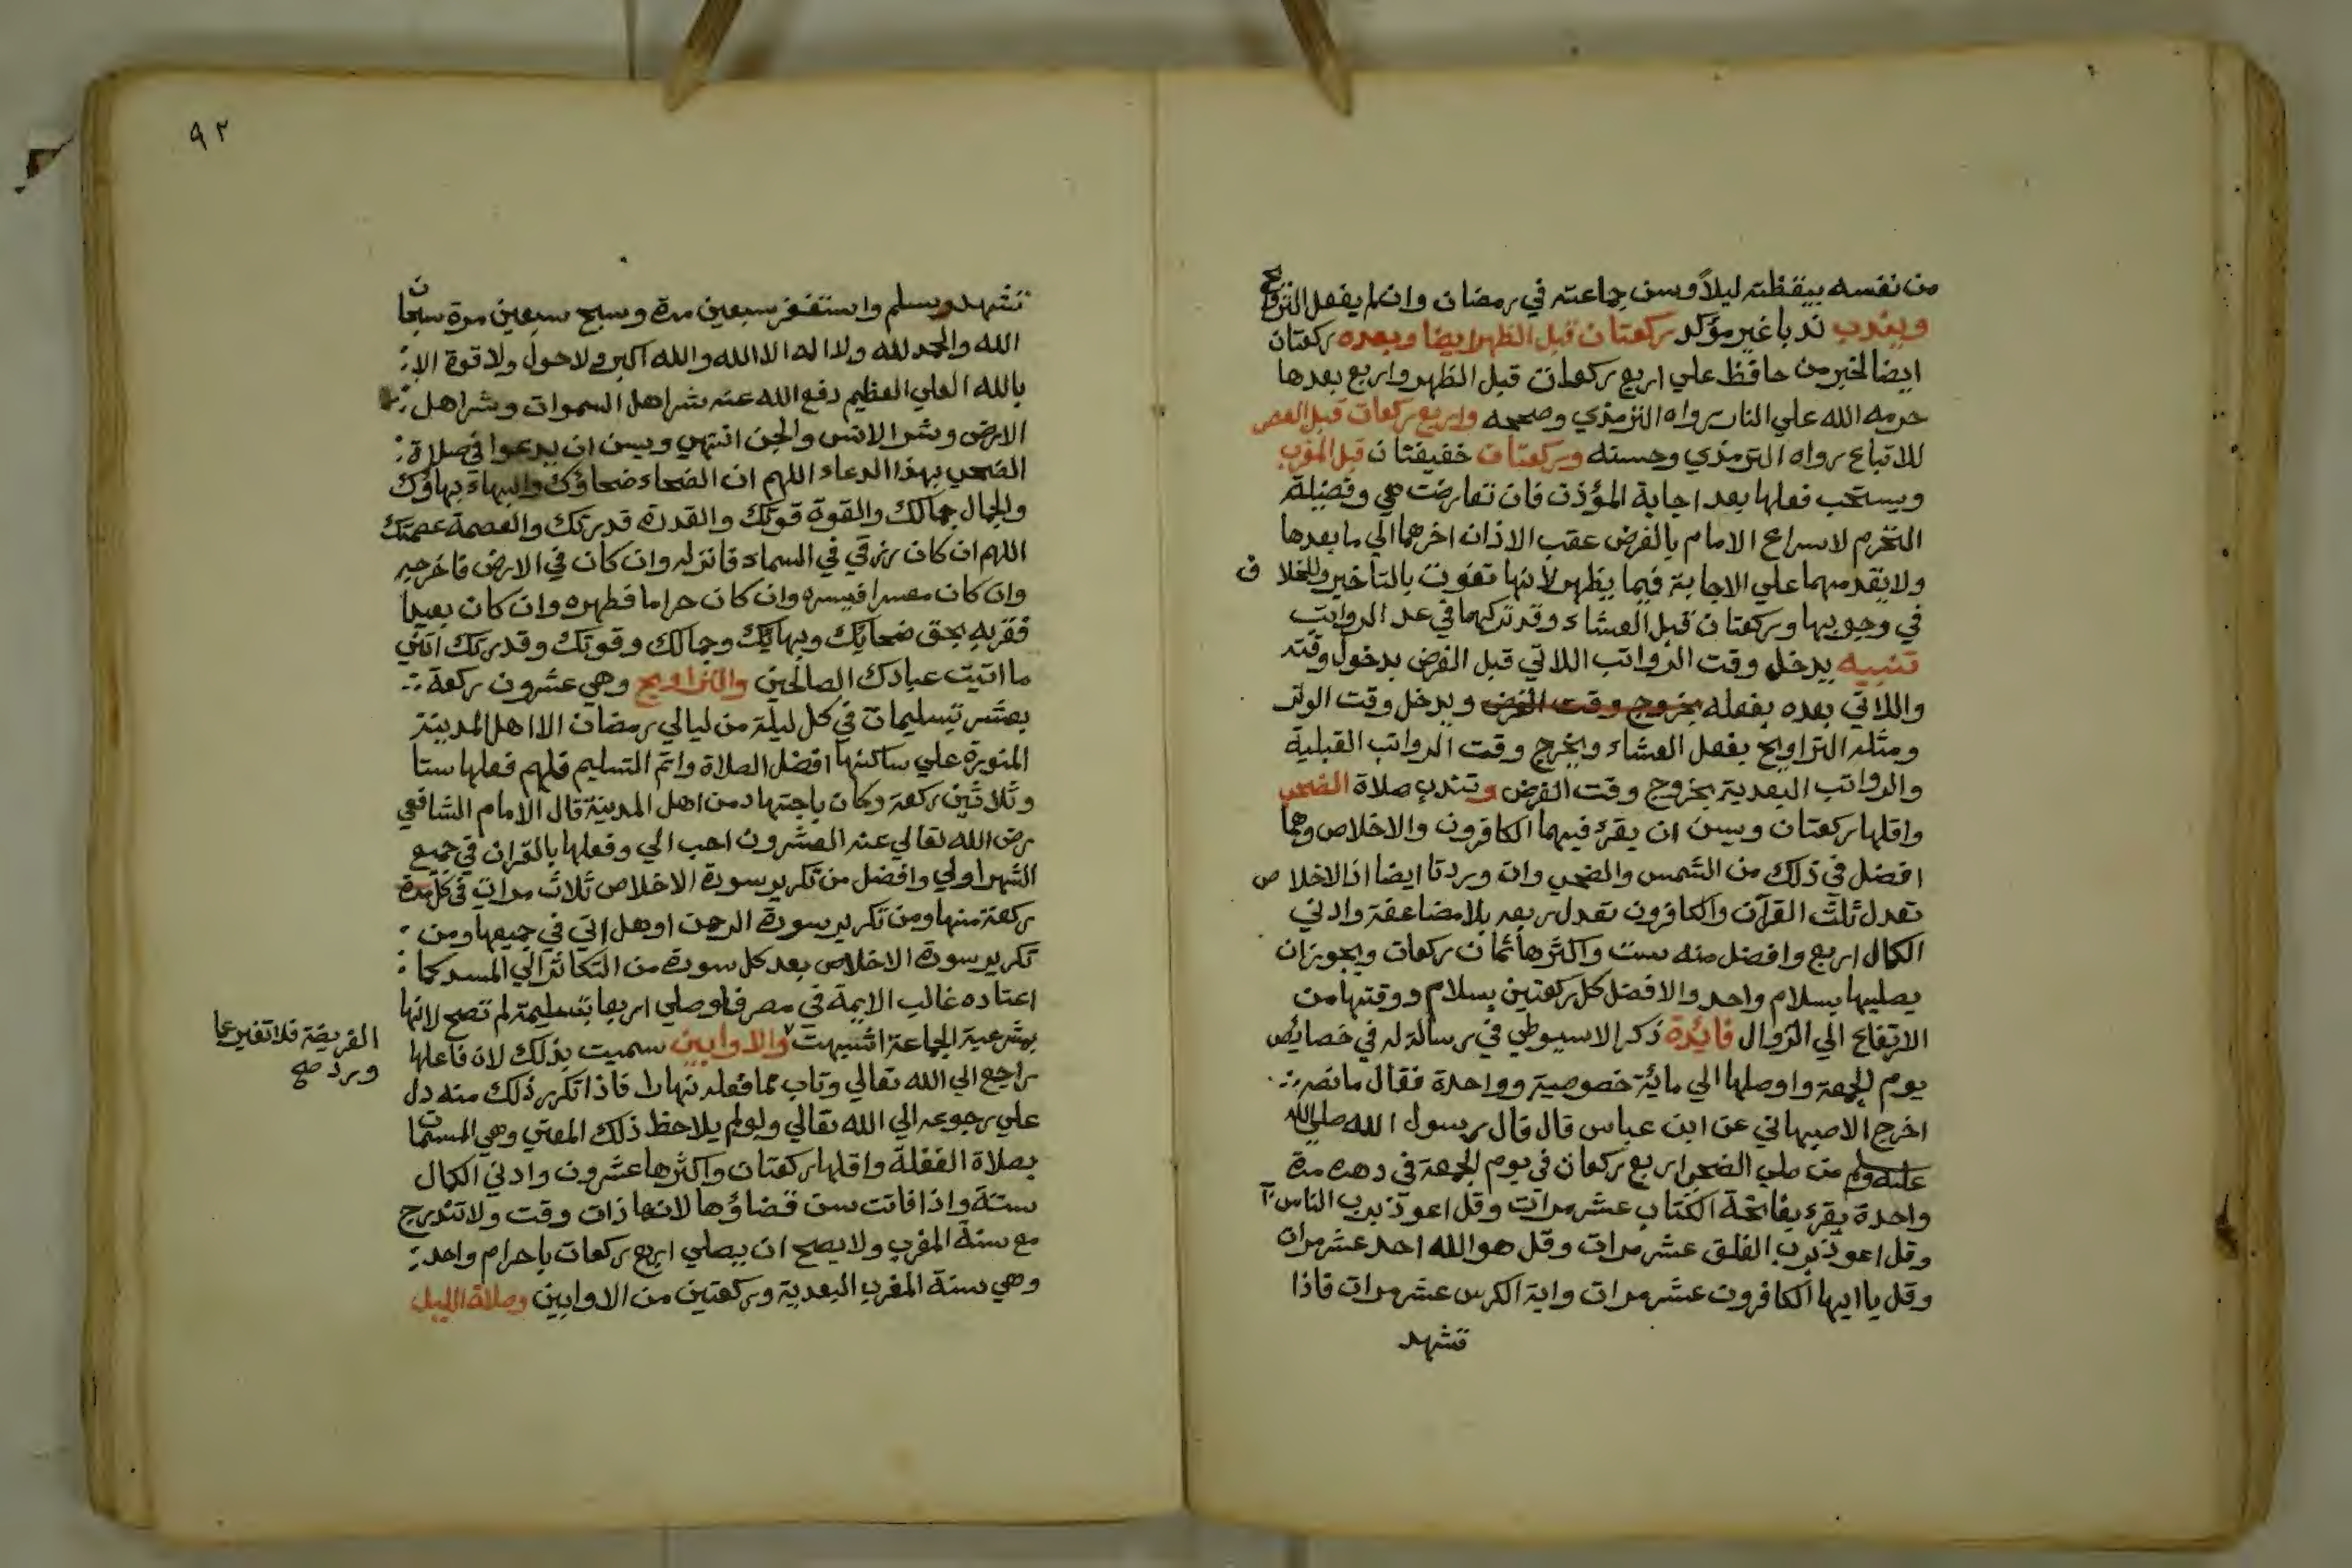 من نفسه بيقظته ليلاً وسن جماعته في رمضان وان لم يفعل التراويح
ويندب ندبا غير مؤكد ركعتان قبل الظهر ايضا وبعده ركعتان
ايضا لخبر من حافظ علي اربع ركعات قبل الظهر واربع بعدها
حرمه الله علي النار رواه الترمذي وصححه واربع ركعات قبل العصر
للاتباع رواه الترمذي وحسنه وركعتان خفيفتان قبل المغرب
ويستحب فعلها بعد اجابة المؤذن فان تعارضت هي وفضيلة
التحرم لاسراع الامام بالفرض عقب الاذان اخرهما الي ما بعدها
ولا يقدمهما علي الاجابة فيما يظهر لانها تفوت بالتأخير وللخلاف
في وجوبها وركعتان قبل العشاء وقد تركهما في عد الرواتب
تنبيه يدخل وقت الرواتب اللاتي قبل الفرض بدخول وقته
واللاتي بعده بفعله بخروج وقت الفرض ويدخل وقت الوتر
ومثله التراويح بفعل العشاء ويخرج وقت الرواتب القبلية
والرواتب البعدية بخروج وقت الفرض وتندب صلاة الضحي
واقلها ركعتان ويسن ان يقرء فيهما الكافرون والاخلاص وهما
افضل في ذلك من الشمس والضحي وان وردتا ايضا اذ الاخلاص
تعدل ثلث القرآن والكافرون تعدل ربعه بلا مضاعفة وادني
الكمال اربع وافضل منه ست واكثرها ثمان ركعات ويجوز ان
يصليها بسلام واحد والافضل كل ركعتين بسلام ووقتها من
الارتفاع الي الزوال فائدة ذكر الاسيوطي في رسالة له في خصائص
يوم الجمعة واوصلها الي مائة خصوصية وواحدة فقال ما نصه
اخرج الاصبهاني عن ابن عباس قال قال رسول الله صلي الله
عليه وسلم من صلي الضحي اربع ركعات في يوم الجمعة في دهره مرة
واحدة يقرء بفاتحة الكتاب عشر مرات وقل اعوذ برب الناس
وقل اعوذ برب الفلق عشر مرات وقل هو الله احد عشر مرات
وقل يا ايها الكافرون عشر مرات واية الكرسي عشر مرات فاذا
تشهد
٩٢
تشهد وسلم واستغفر سبعين مرة وسبح سبعين مرة سبحان
الله والحمد لله ولا اله الا الله والله اكبر ولا حول ولا قوة الا
بالله العلي العظيم دفع الله عنه شر اهل السموات وشر اهل
الارض وشر الانس والجن انتهي ويسن ان يدعوا في صلاة
الضحي بهذا الدعاء اللهم ان الضحاء ضحاؤك والبهاء بهاؤك
والجمال جمالك والقوة قوتك والقدرة قدرتك والعصمة عصمتك
اللهم ان كان رزقي في السماء فانزله وان كان في الارض فاخرجه
وان كان معسرا فيسره وان كان حراما فطهره وان كان بعيدا
فقربه بحق ضحائك وبهائك وجمالك وقوتك وقدرتك اتني
ما اتيت عبادك الصالحين والتراويح وهي عشرون ركعة
بعشر تسليمات في كل ليلة من ليالي رمضان الا اهل المدينة
المنورة علي ساكنها افضل الصلاة واتم التسليم فلهم فعلها ستا
وثلاثين ركعة وكان باجتهاد من اهل المدينة قال الامام الشافعي
رضي الله تعالي عنه العشرون احب الي وفعلها بالقران في جميع
الشهر اولي وافضل من تكرير سورة الاخلاص ثلاث مرات في كل
ركعة منها ومن تكرير سورة الرحمن او هل اتي في جميعها ومن
تكرير سورة الاخلاص بعد كل سورة من التكاثر الي المسد كما
اعتاده غالب الايمة في مصر فلو صلي اربعا بتسليمة لم تصح لانها
بمشرعية الجماعة اشبهت والاوابين سميت بذلك لان فاعلها
الفريضة فلا تغير عما
ورد صح
راجع الي الله تعالي وتاب مما فعله نهارا فاذا تكرر ذلك منه دل
علي رجوعه الي الله تعالي ولو لم يلاحظ ذلك المعني وهي المسماة
بصلاة الغفلة واقلها ركعتان واكثرها عشرون وادني الكمال
ستة واذا فاتت سن قضاؤها لانها ذات وقت ولا تندرج
مع سنة المغرب ولا يصح ان يصلي اربع ركعات باحرام واحد
وهي سنة المغرب البعدية وركعتين من الاوابين وصلاة الليل